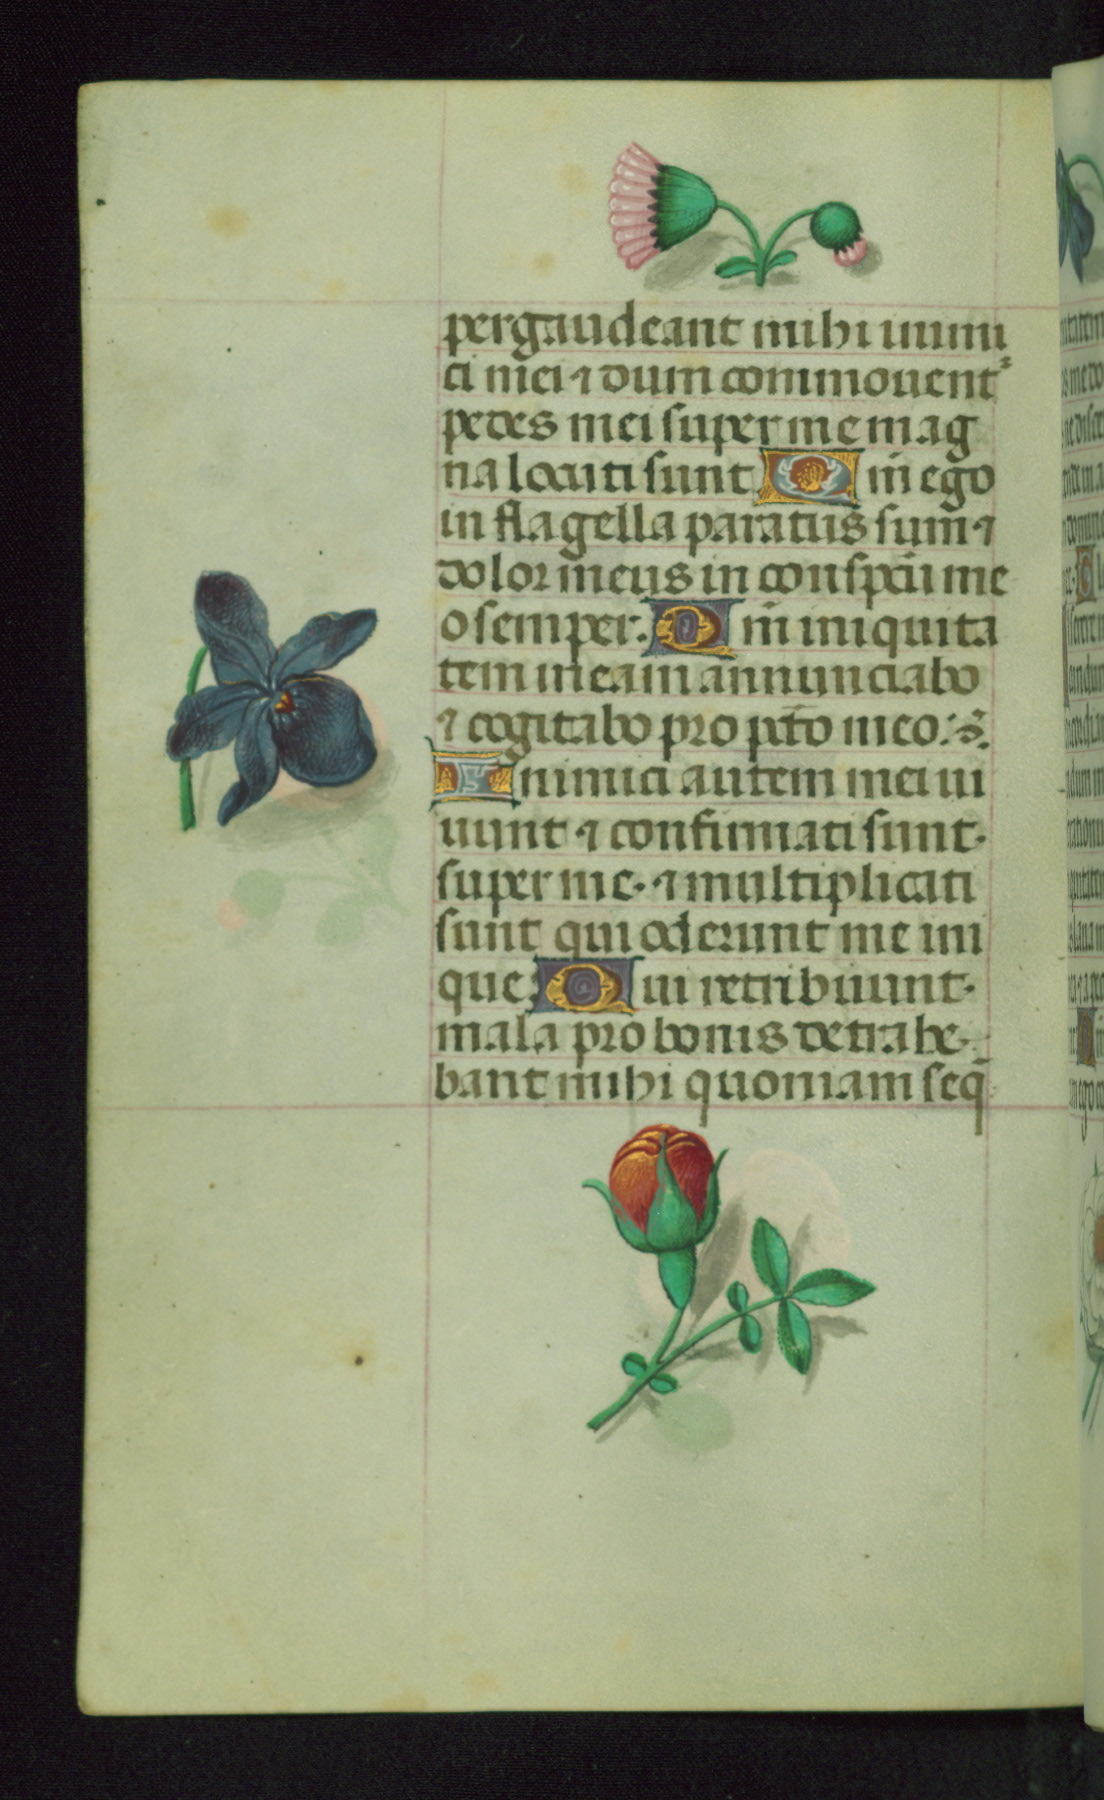 pergaudeant mihi inimi
ci mei ⁊ dum commouentᷣ
pedes mei super me mag
na locuti sunt Q m̄ ego
in flagella paratus sum ⁊
dolor meus in conspc̄tu me
o semper. Q m̄ iniquita
tem meam annunciabo
⁊ cogitabo pro pc̄to meo.
Inimici autem mei ui
uunt ⁊ confirmati sunt
super me. ⁊ multiplicati
sunt qui oderunt me ini
que. Qui retribuunt
mala pro bonis detrahe
bant mihi quoniam seq̄